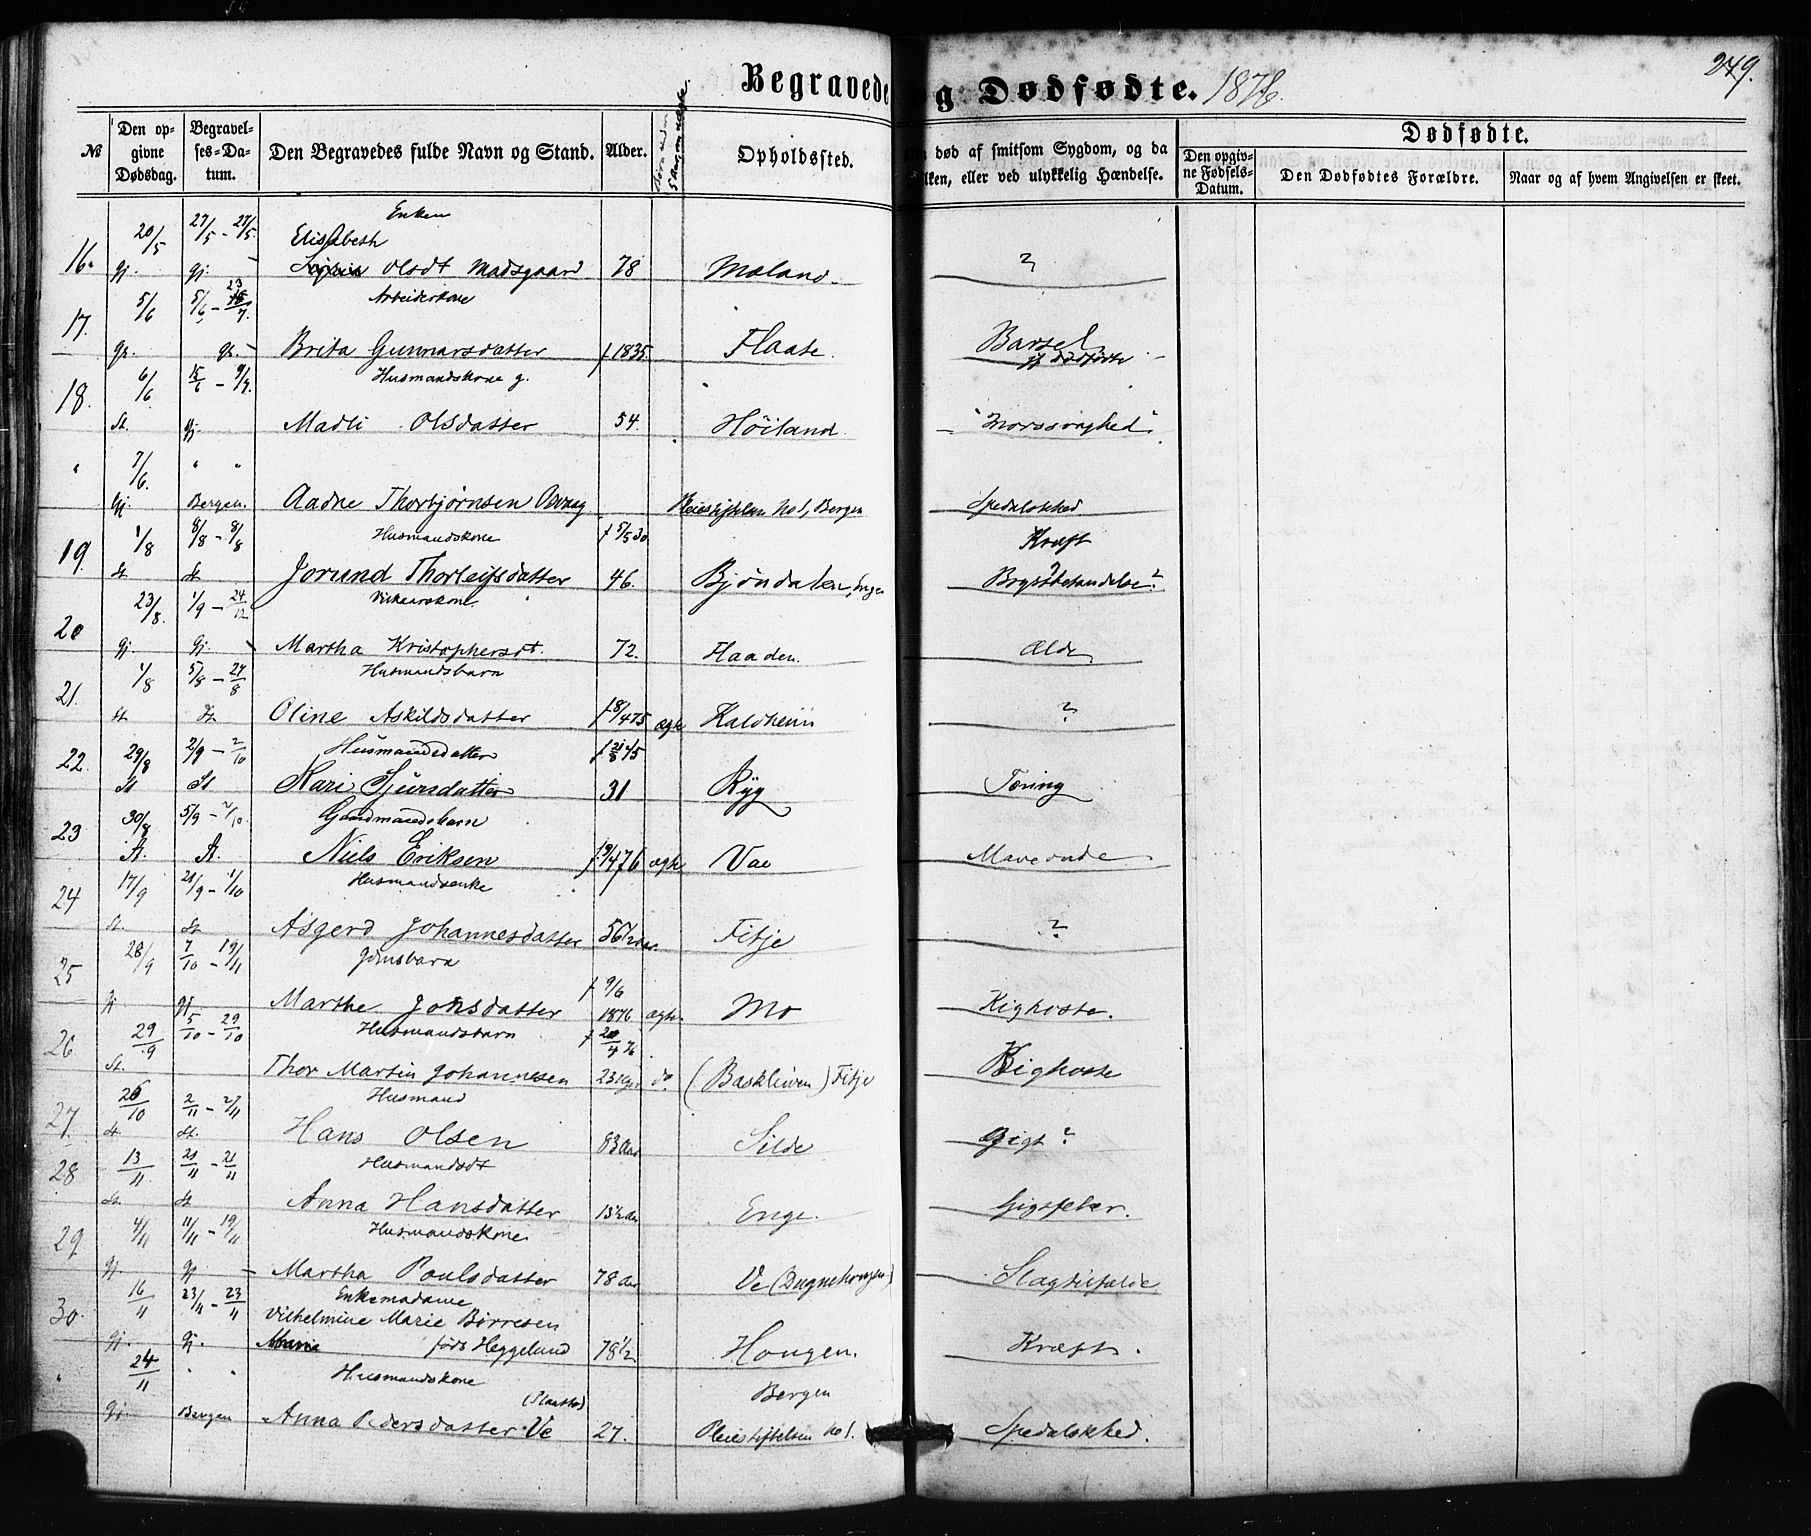 Begravede og Dødfødte. 1876.
249.
№
Den opgivne Dødsdag.
Begravelses-Datum.
Den Begravedes fulde Navn og Stand.
Alder.
Opholdssted.
død af smitsom Sygdom, og da
ilken, eller ved ulykkelig Hændelse.
Dødfødte.
Den opgivne Fødsels-Datum.
Den Dødfødtes Forældre.
Naar og af hvem Angivelsen er skeet.
20/5 27/5 - 27/5 Enken
Elisabeth
16. Gj. Gj. Olsdt Madsgaard 78 Mæland. ?
5/6 5/6 - 23/7. Arbeiderkone
17. Gr. Gr. Brita Gunnarsdatter f 1835. Flaate. Barsel jf dødfødte
6/6 15/6 - 9/7. Husmandskone g.
18. St. Gj. Madli Olsdatter 54. Høiland. "Morssvaghed"
" 7/6. " "
Gj. Bergen. Aadne Thorbjørnsen Pleiestiftelsen No 1, Bergen Spedalskhed
1/8 8/8 - 8/8 Husmandskone f 5/5 30. Kræft
19. St St Jorund Thorleifsdatter 46. Bjøndalen, Brystbetændelse?
23/8. 1/9 - 24/12 Vilkaarskone.
20 Gj. Gj. Martha Kristophersdt. 72. Flaaden. Ælde
1/8 5/8 - 27/8 Husmandsbarn
21. St St Oline Askildsdatter f 18/4 75 ægte Kaldheim ?
22. 29/8 2/9 - 2/10 Husmandsdatter f 21/8 45
St St Kari Sjursdatter 31 Ryg Tæring
23 30/8 5/9 - 2/10. Gaardmandsbarn
St. St. Niels Eriksen f. 19/4 76 ægte Vae Maveonde
24 17/9 21/9 - 1/10 Husmandsenke
St. St Asgerd Johannesdatter 56 1/2 aar. Fitje ?
25 28/9 7/10 - 19/11 Jdmsbarn
Gj Gj. Marthe Johsdatter f 9/6 1876 ægte. Mo Kighoste.
26 29/9 5/10 - 29/10 Husmandsbarn f 20/4 76
St. Thor Martin Johannesen 23 Uger do (Baskleiven) Fitje Kighoste
27. 26/10 2/11 - 2/11 Husmand
St St. Hans Olsen 83 Aar Silde Gigt?
28 13/11 21/11 - 21/11 Husmandsdt
St. St Anna Hansdatter 13 1/2 Aar Enge. Gigtfeber.
29 4/11 11/11 - 19/11 Husmandskone
Gj. Gj Martha Poulsdatter 78 Aar Ve Slagtilfælde
30. 16/11 23/11 - 23/11 Enkemadame
Vilhelmine Marie Børresen
Gj. Gj. født Heggelund 78 1/2 Hougen. Kræft.
" 24/11 " " Husmandskone Bergen
Gj. Bergen Anna Pedersdatter Ve 27. Pleiestiftelsen No 1. Spedalskhed.